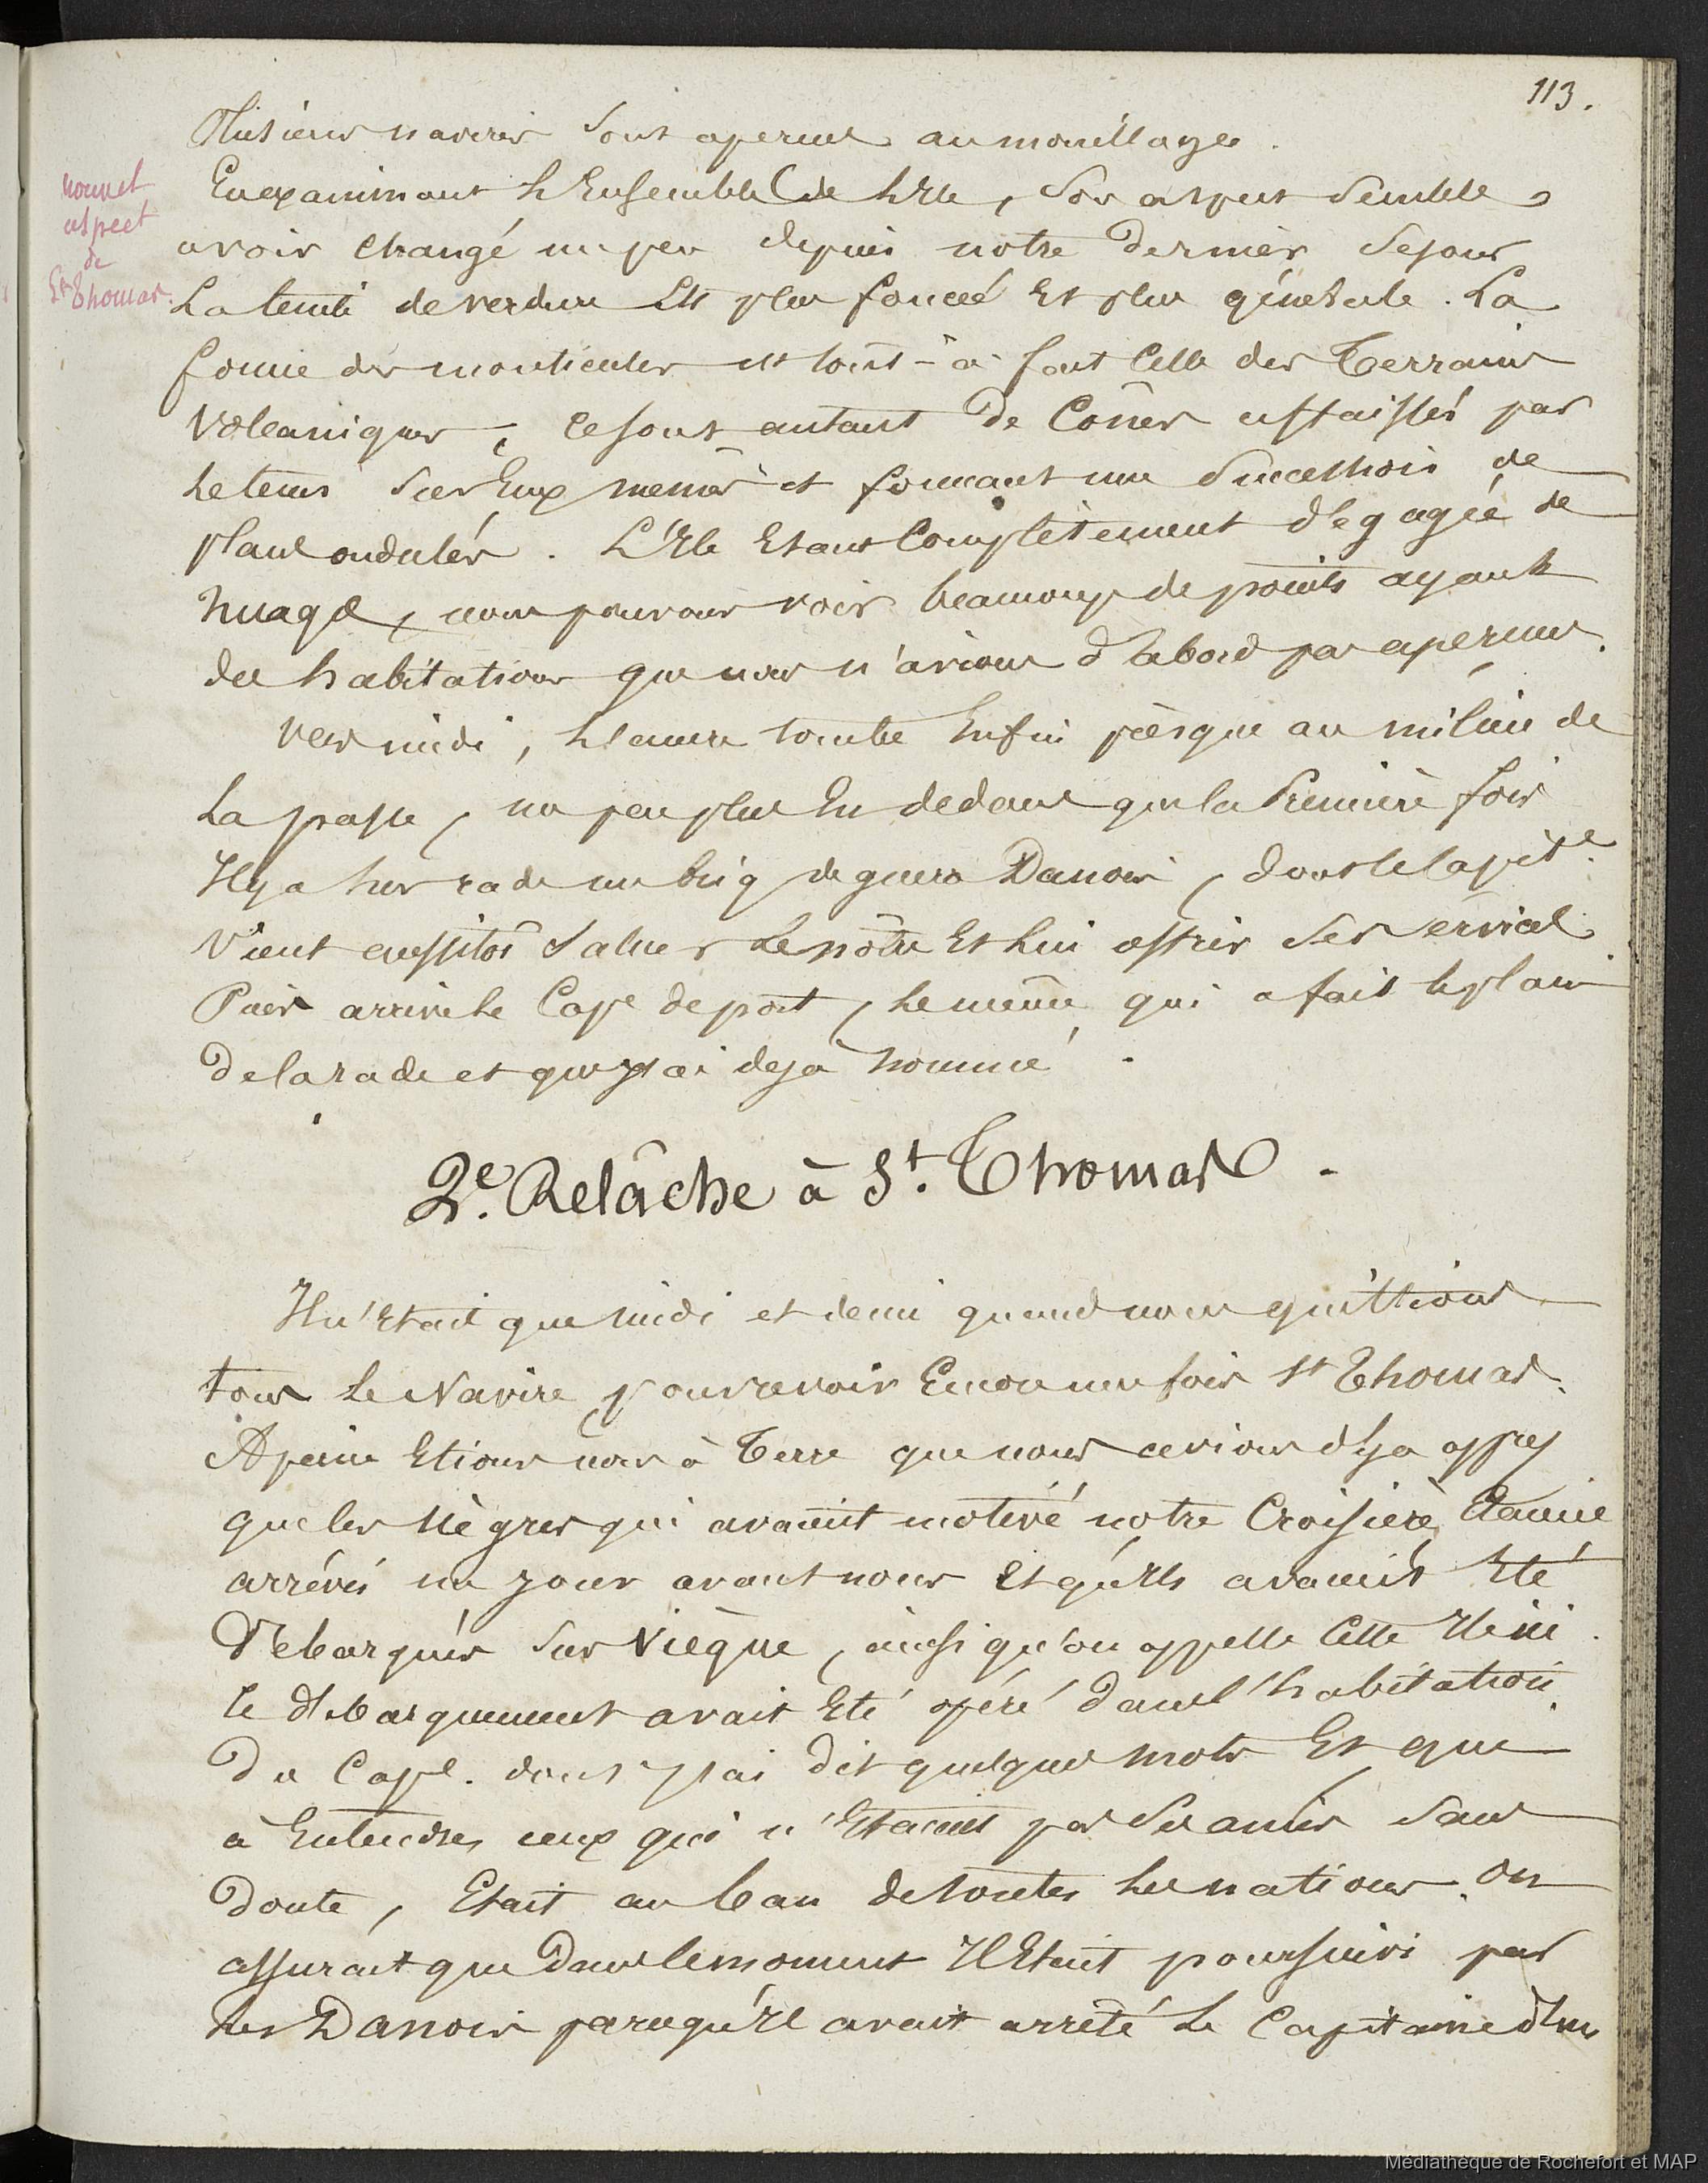 113.
Plusieurs navires sont aperçus au mouillage.
nouvel
aspect
de
St Thomas.
En examinant l'Ensemble de l'Ile, son aspect semble
avoir changé un peu depuis notre dernier sejour
La teinte de verdure Est plus foncée Et plus générale. La
forme des monticules est tout-à-fait Celle des Terrains
Volcaniques, ce sont autant de Cônes affaissés par
le tems sur Eux mêmes et formant une Succession de
plans ondulés. L'Ile Etant Complètement dégagée de
nuages, nous pouvons voir beaucoup de points ayant
des habitations que nous n'avions d'abord pas aperçues.
Vers midi, l'ancre tombe Enfin présque au milieu de
La passe, un peu plus En dedans que la Première fois
Il y a sur rade un brig de guerre Danois, dont le Capit.e
Vient aussitôt Saluer Le nôtre Et lui offrir ses services.
Puis arrive le Cap.e de port, le même qui a fait le plan
de la rade et que j'ai deja nommé.
2.e Relâche à S.t Thomas.
Il n'Etait que midi et demi quand nous quittions
tous le Navire, pour revoir Encore une fois St Thomas.
A peine Etions nous à Terre que nous avions dejà appris
que les Nègres qui avaient motivé notre Croisière, Etaient
arrivés un jour avant nous Et qu'Ils avaient Eté
Débarqués sur Vièque, ainsi qu'on appelle Cette Ile ici.
Le débarquement avait Eté opéré dans l'habitation
Du Cap.e dont j'ai dit quelques mots Et qui
à Entendre, ceux qui n'Etaient pas Ses amis sans
doute, Etait au ban de toutes les nations. On
assurait que Dans le moment Il Etait poursuivi par
les Danois parcequ'Il avait arrêté Le Capitaine d'un
Médiathèque de Rochefort et MAP